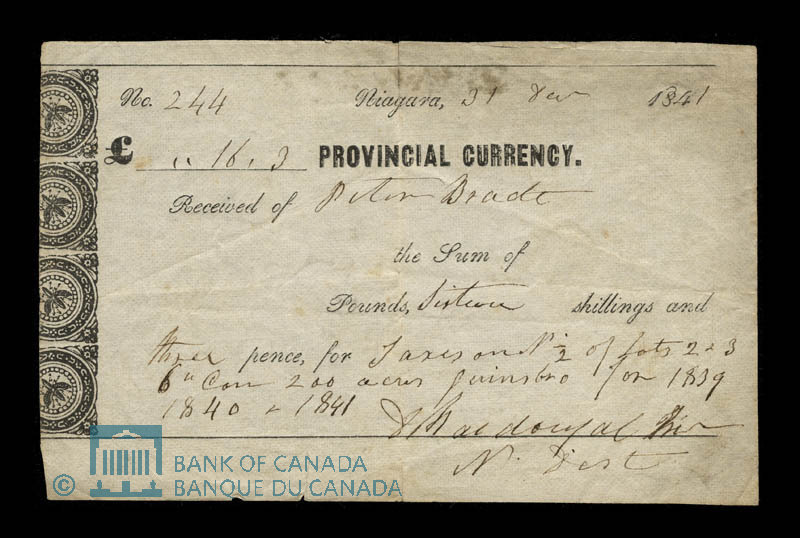 No. 244 Niagara, 31 Dec 1841
£ " 16 . 3 PROVINCIAL CURRENCY.
Received of Peter Brade
the Sum of
Pounds, Sixteen shillings and
three pence, for Taxes on N ½ of Lots 2 & 3
6th Con 200 acres for 1839
1840 & 1841
D Macdougal
N. Dist
© BANK OF CANADA
BANQUE DU CANADA